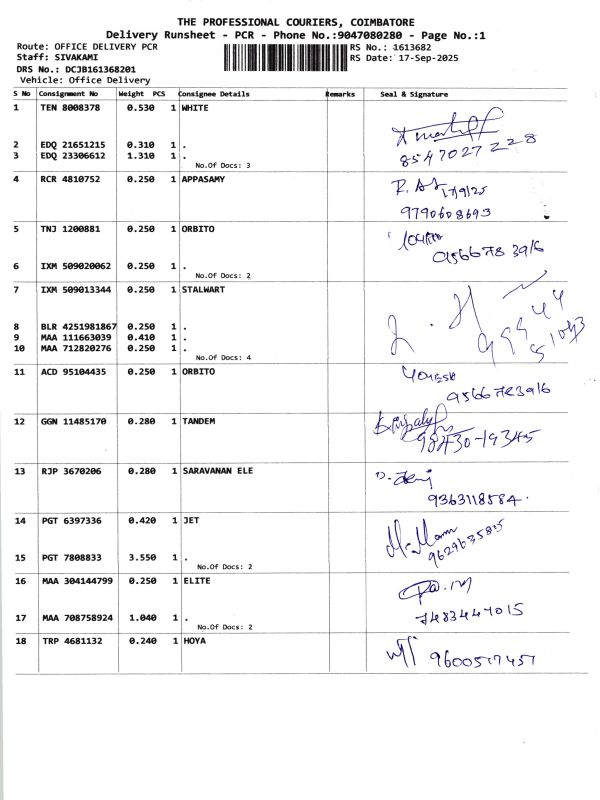 THE PROFESSIONAL COURIERS, COIMBATORE
Delivery Runsheet - PCR - Phone No.:9047080280 - Page No.:1
Route: OFFICE DELIVERY PCR
RS No.: 1613682
Staff: SIVAKAMI
RS Date: 17-Sep-2025
DRS No.: DCJB161368201
Vehicle: Office Delivery
S No Consignment No Weight PCS Consignee Details Remarks Seal & Signature
1 TEN 8008378 0.530 1 WHITE
2 EDQ 21651215 0.310 1 .
8547027228
3 EDQ 23306612 1.310 1 .
No.Of Docs: 3
4 RCR 4810752 0.250 1 APPASAMY
17/9/25
9790608693
5 TNJ 1200881 0.250 1 ORBITO
9566783916
6 IXM 509020062 0.250 1 .
No.Of Docs: 2
7 IXM 509013344 0.250 1 STALWART
8 BLR 4251981867 0.250 1 .
9 MAA 111663039 0.410 1 .
10 MAA 712820276 0.250 1 .
No.Of Docs: 4
11 ACD 95104435 0.250 1 ORBITO
9566783916
12 GGN 11485170 0.280 1 TANDEM
98430-19345
13 RJP 3670206 0.280 1 SARAVANAN ELE
9363118584.
14 PGT 6397336 0.420 1 JET
9629635805
15 PGT 7808833 3.550 1 .
No.Of Docs: 2
16 MAA 304144799 0.250 1 ELITE
7483447015
17 MAA 708758924 1.040 1 .
No.Of Docs: 2
18 TRP 4681132 0.240 1 HOYA
9600517457